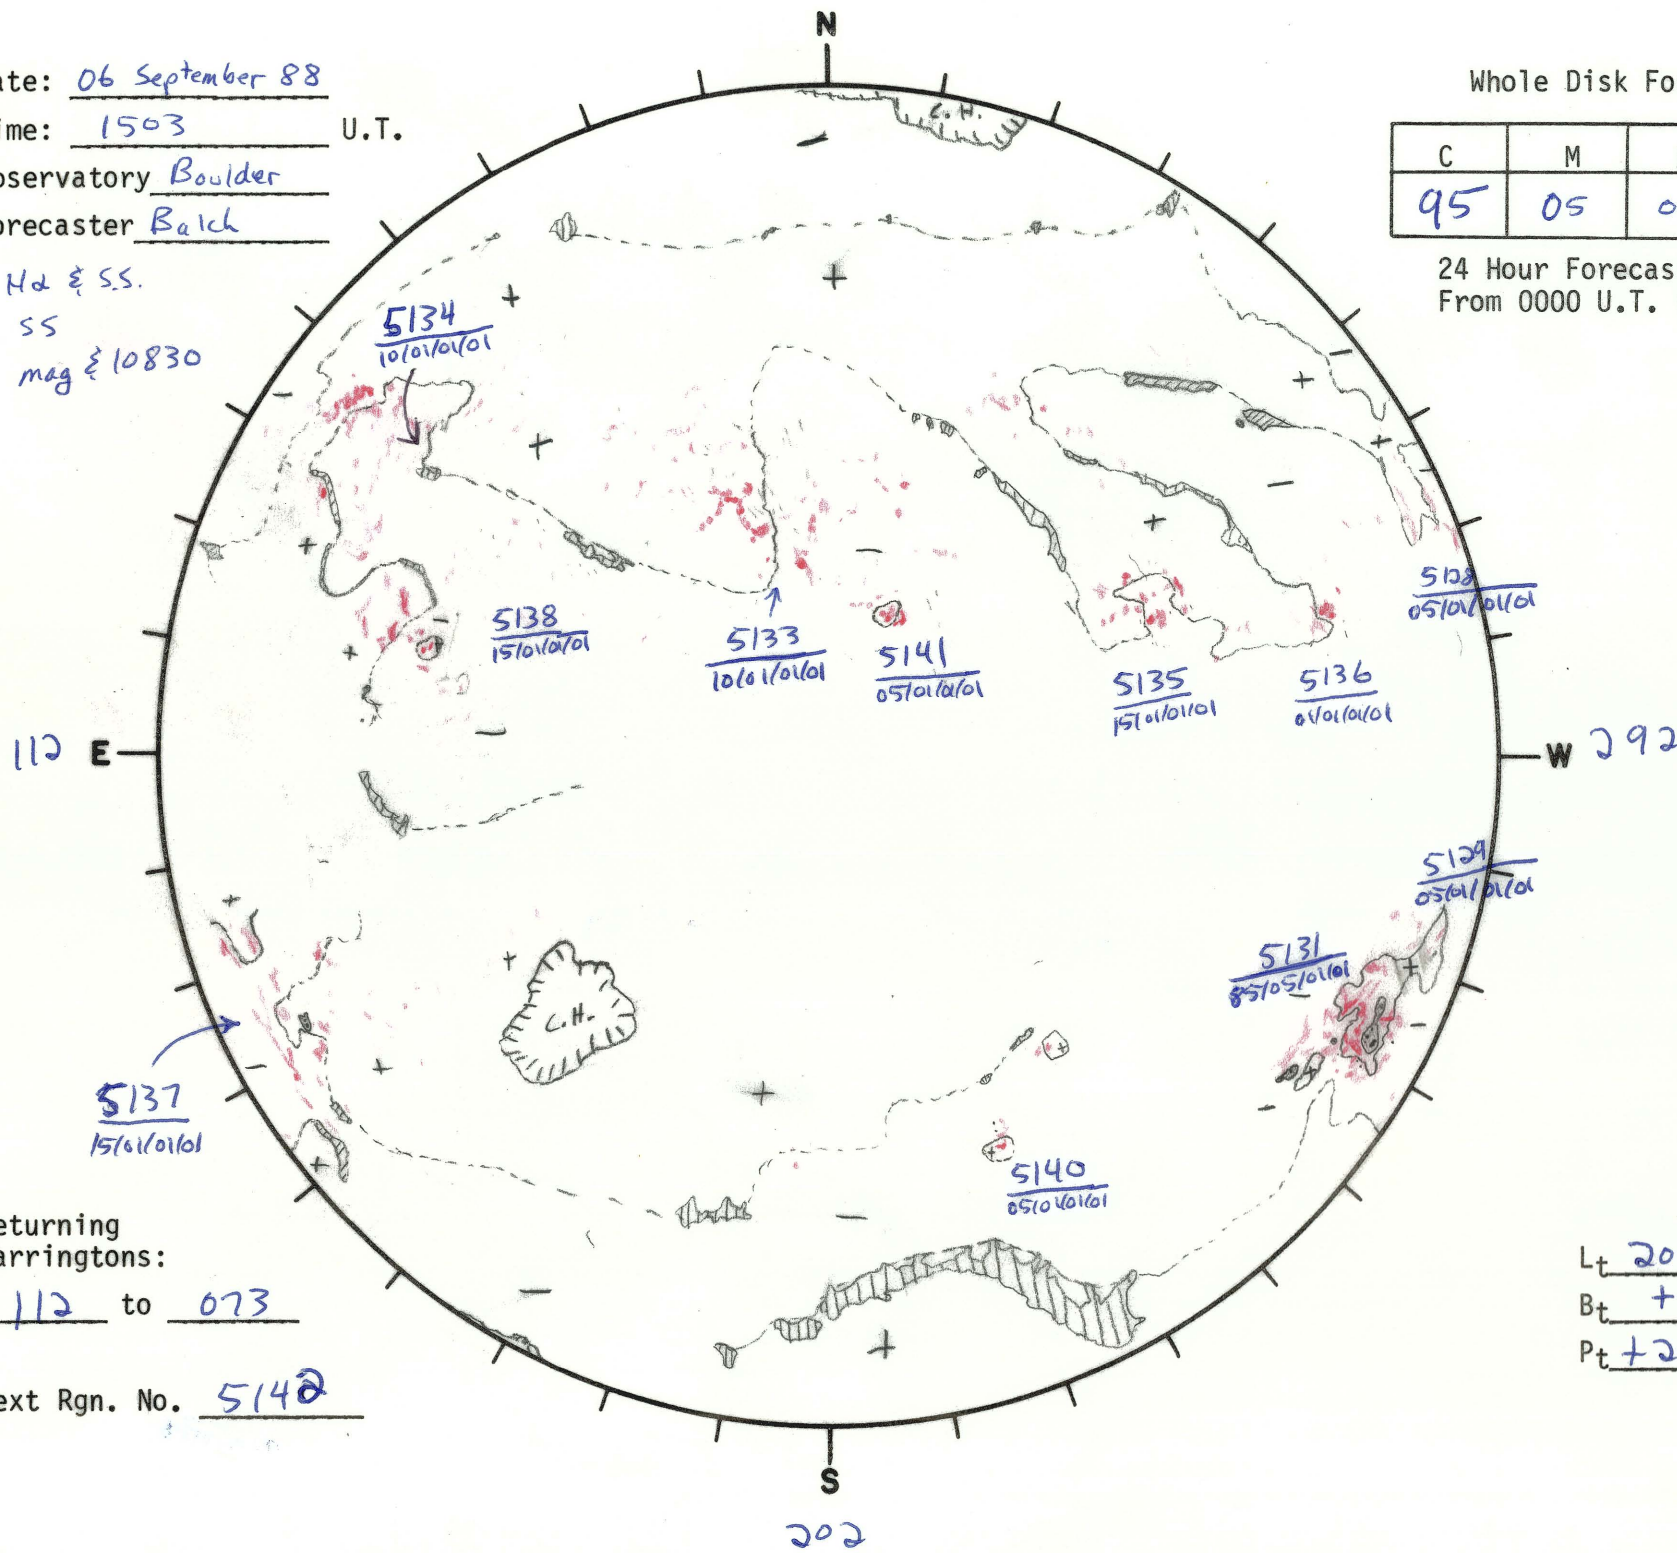 N
ate: 06 September 88
ime: 1503 U.T.
bservatory Boulder
orecaster Balch
Hα & S.S.
SS
mag & 10830
Whole Disk Fo
C M
95 05 0
24 Hour Forecas
From 0000 U.T.
C.H.
5134
10/01/01/01
5138
15/01/01/01
5133
10/01/01/01
5141
05/01/01/01
5135
15/01/01/01
5136
01/01/01/01
5128
05/01/01/01
112 E
W 292
5129
05/01/01/01
5131
85/05/01/01
C.H.
5137
15/01/01/01
5140
05/01/01/01
eturning
arringtons:
112 to 073
ext Rgn. No. 5142
Lt 20
Bt +
Pt +2
S
202